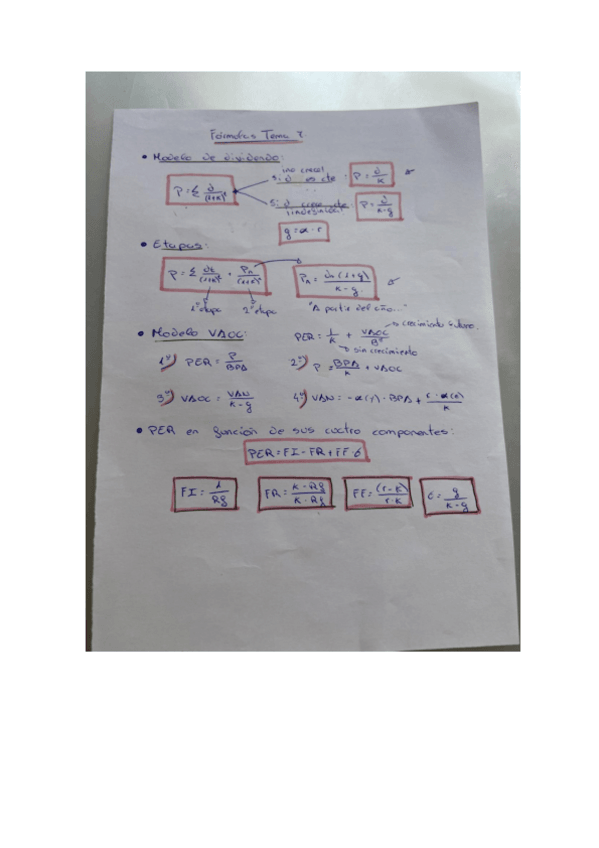 Fórmulas Tema 7.
• Modelo de dividendo:
P = Σ D/(1+K)^t
(no crece)
Si D es cte : P = D/K
Si D crece cte (indefinida) : P = D/(K-g)
g = α · r
• Etapas:
P = Σ Dt/(1+K)^t + Pn/(1+K)^n
Pn = Dn(1+g)/(K-g)
1ª etapa 2ª etapa "A partir del año..."
• Modelo VAOC: PER = 1/K + VAOC/Bº → crecimiento futuro.
→ sin crecimiento
1º) PER = P/BPA 2º) P = BPA/K + VAOC
3º) VAOC = VAN/(K-g) 4º) VAN = -α(r) · BPA +
• PER en función de sus cuatro componentes:
PER = FI - FR + FF · G
FI = 1/Rg FR = (K - Rg)/(K · Rg) FF = (r - K)/(r · K) G = g/(K - g)